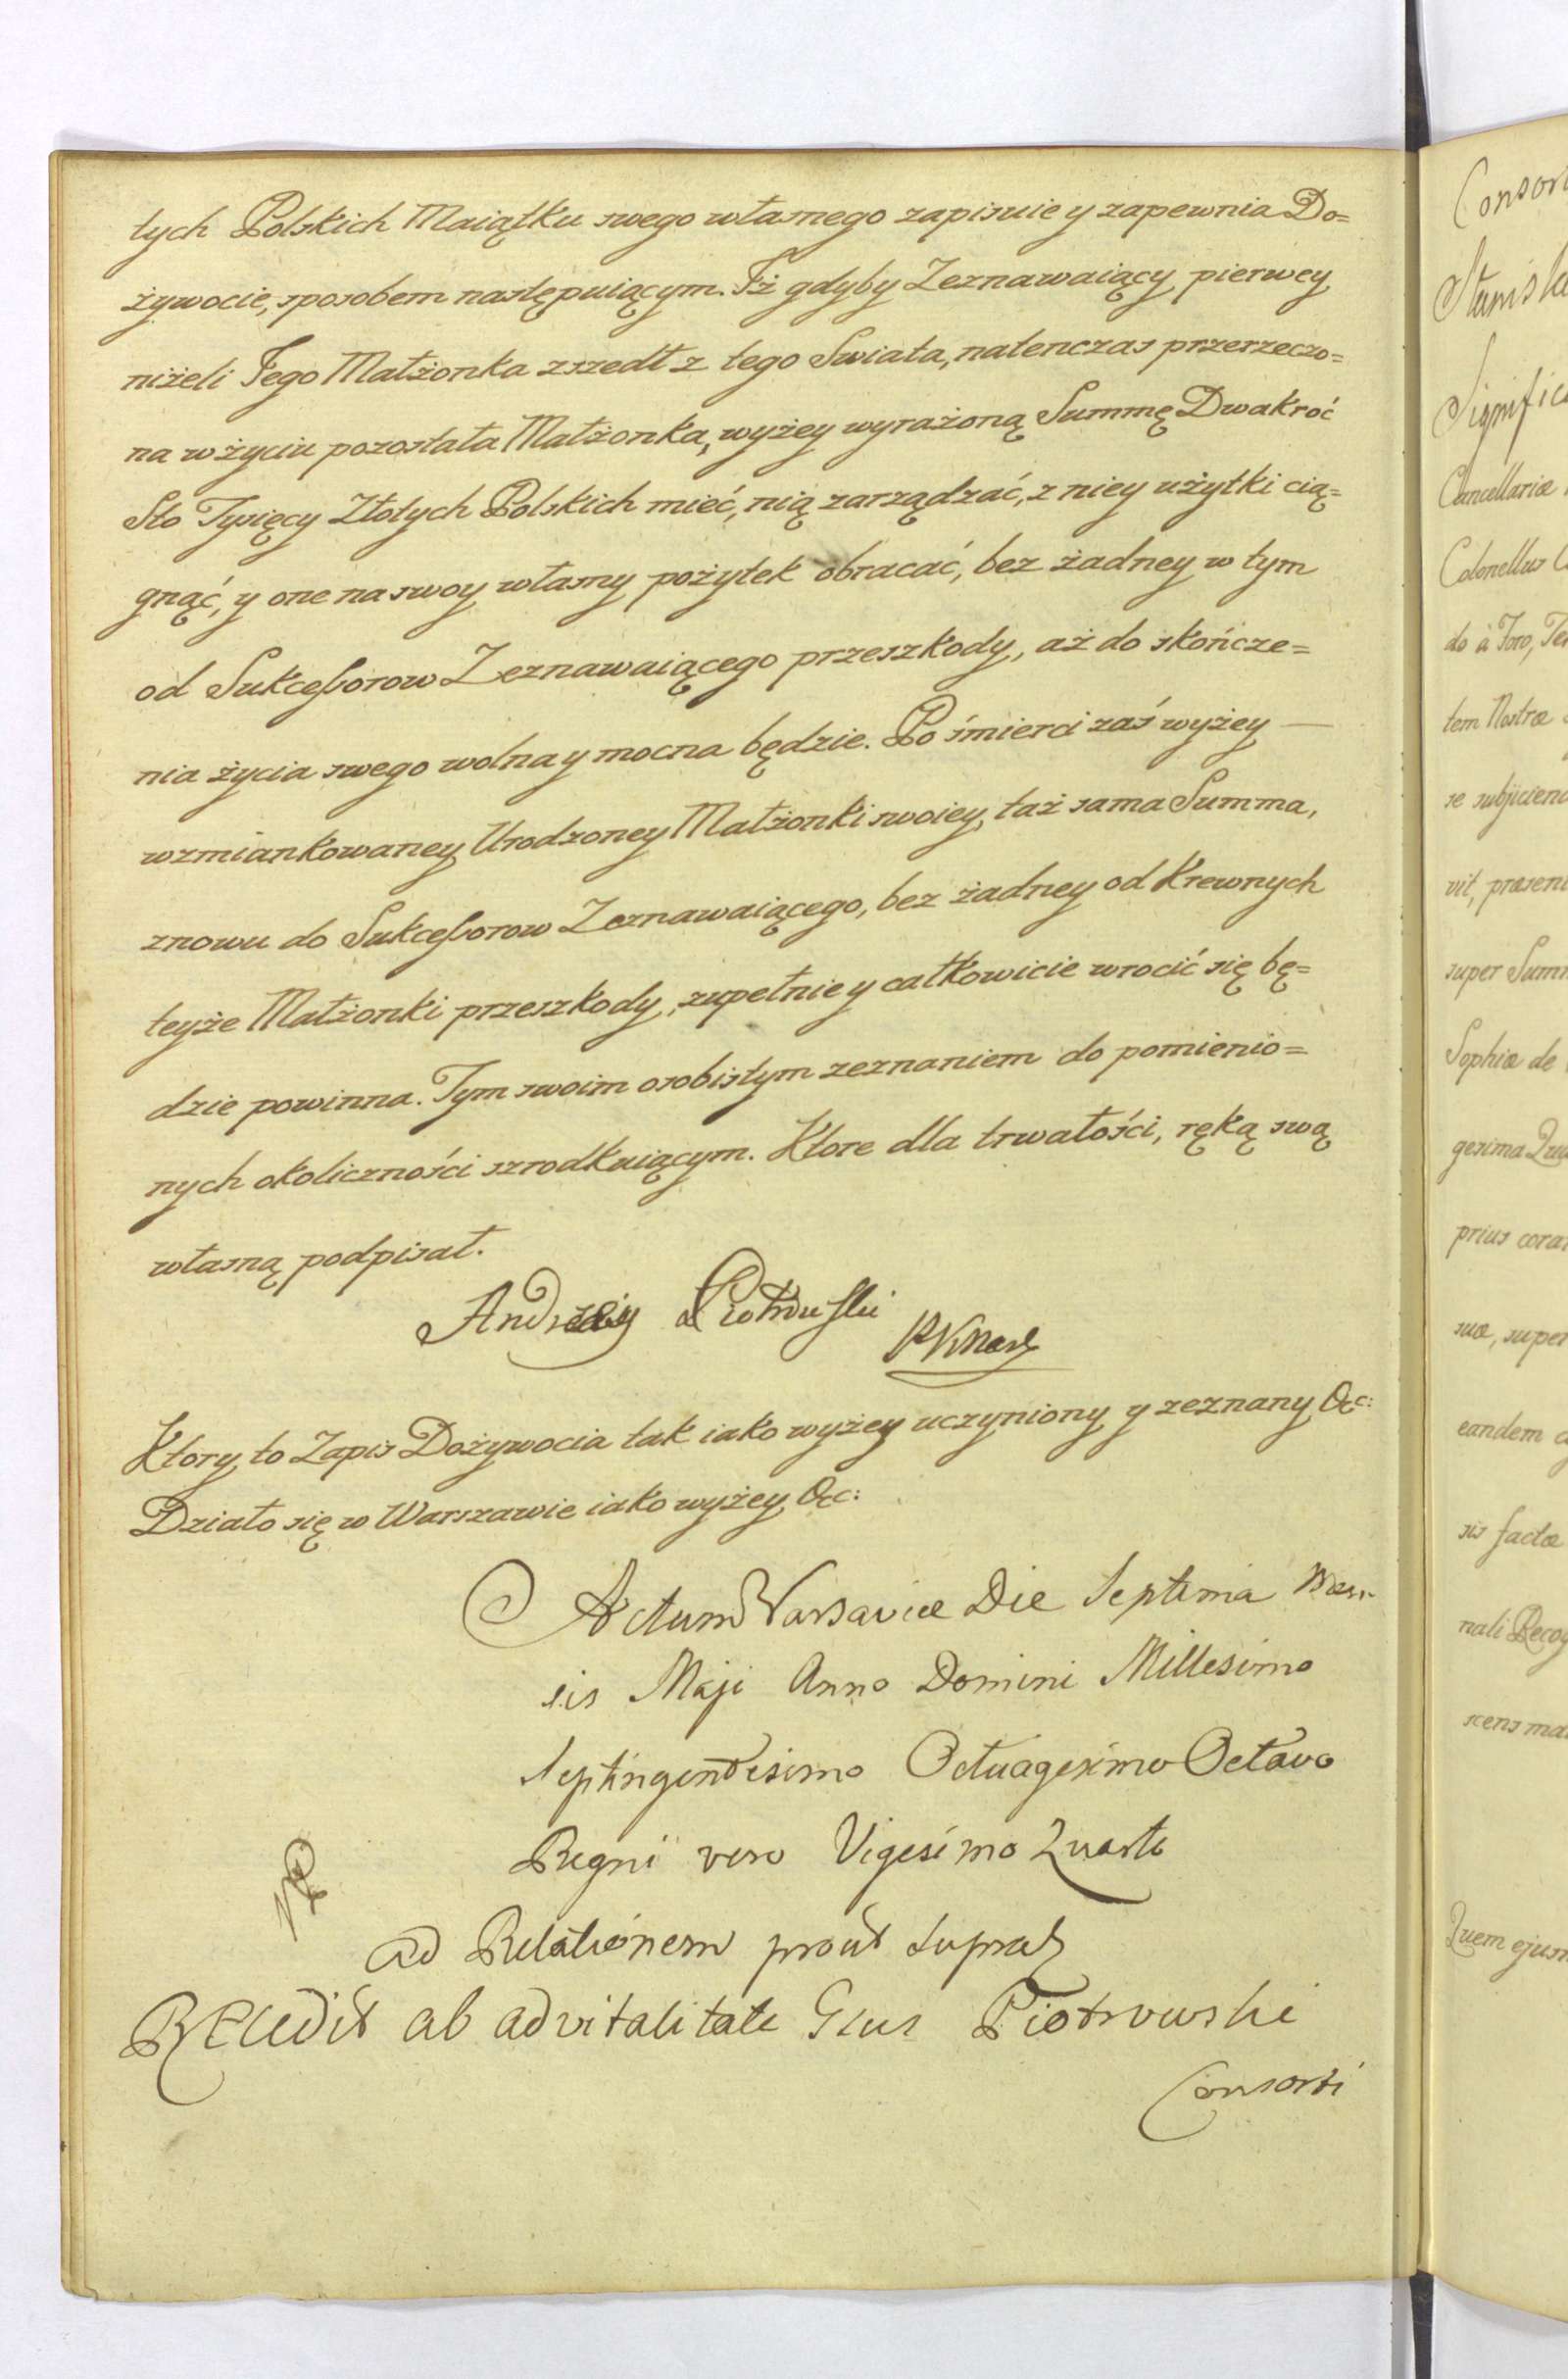 tych Polskich Maiątku swego własnego zapisuie y zapewnia Do=
żywocie, sposobem następuiącym. Iż gdyby Zeznawaiący pierwey
niżeli Jego Małżonka zszedł z tego Swiata, natenczas przerzeczo=
na w życiu pozostała Małżonka, wyżey wyrażoną Summę Dwakroć
Sto Tysięcy Złotych Polskich mieć, nią zarządzać, z niey użytki cią=
gnąć, y one na swoy własny pożytek obracać, bez żadney w tym
od Sukceßorow Zeznawaiącego przeszkody, aż do skończe=
nia życia swego wolna y mocna będzie. Po śmierci zaś wyżey —
wzmiankowaney Urodzoney Małżonki swoiey, taż sama Summa,
znowu do Sukceßorow Zeznawaiącego, bez żadney od Krewnych
teyże Małżonki przeszkody, zupełnie y całkowicie wrocić się bę=
dzie powinna. Tym swoim osobistym zeznaniem do pomienio=
nych okoliczności szrodkuiącym. Ktore dla trwałości, ręką swą
własną podpisał.
Andrzey Piotrowski
Ktory to Zapis Dożywocia tak iako wyżey uczyniony y zeznany &c:
Działo się w Warszawie iako wyżey &c:
Actum Varsaviæ Die Septima Men-
sis Maji Anno Domini Millesimo
Septingentesimo Octuagesimo Octavo
Regni vero Vigesimo Quarto
ad Relationem prout supra
Recedit ab advitalitate Gsus Piotrowski
Consorti
Consor
Stanisla
Significa
Cancellariæ
Colonellus C
do à Foro, Te
tem Nostræ
se subjiciend
vit, præsen
super Sum
Sophiæ de
gesima Qua
prius cora
suæ, super
eandem
sis factæ
nali Recog
scens ma
Quem ejus